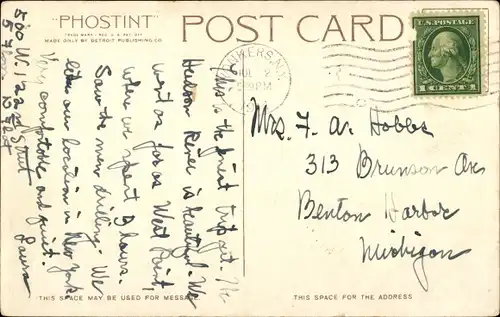 "PHOSTINT"
TRADE MARK - REG. U.S. PAT. OFF.
MADE ONLY BY DETROIT PUBLISHING CO.
POST CARD
U.S. POSTAGE
YONKERS, N.Y.
JUL 2
PM
This is the great trip out. The
Hudson River is beautiful. We
went as far as West Point,
where we spent 3 hours.
Saw the men drilling. We
like our location in New York.
Very comfortable and quiet.
Laura
500 W. 122nd Street
Mrs. F. A. Hobbs
313 Brunson Ave
Benton Harbor
Michigan
THIS SPACE MAY BE USED FOR MESSAGE.
THIS SPACE FOR THE ADDRESS